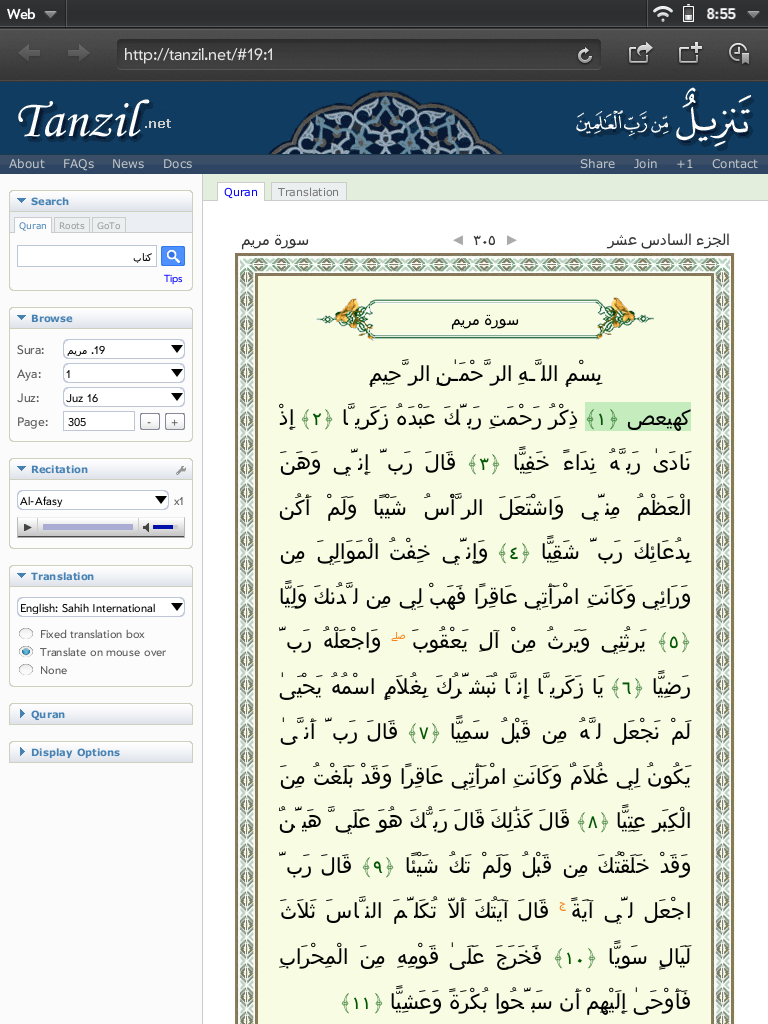 Web
8:55
http://tanzil.net/#19:1
Tanzil.net
تَنزِيلٌ مِّن رَّبِّ الْعَالَمِينَ
About FAQs News Docs
Share Join +1 Contact
Search
Quran Roots GoTo
كتاب
Tips
Browse
Sura: 19. مريم
Aya: 1
Juz: Juz 16
Page: 305 - +
Recitation
Al-Afasy x1
Translation
English: Sahih International
Fixed translation box
Translate on mouse over
None
Quran
Display Options
Quran Translation
الجزء السادس عشر ٣٠٥ سورة مريم
سورة مريم
بِسْمِ اللَّـهِ الرَّحْمَـٰنِ الرَّحِيمِ
كهيعص ﴿١﴾ ذِكْرُ رَحْمَتِ رَبِّكَ عَبْدَهُ زَكَرِيَّا ﴿٢﴾ إِذْ
نَادَىٰ رَبَّهُ نِدَاءً خَفِيًّا ﴿٣﴾ قَالَ رَبِّ إِنِّي وَهَنَ
الْعَظْمُ مِنِّي وَاشْتَعَلَ الرَّأْسُ شَيْبًا وَلَمْ أَكُن
بِدُعَائِكَ رَبِّ شَقِيًّا ﴿٤﴾ وَإِنِّي خِفْتُ الْمَوَالِيَ مِن
وَرَائِي وَكَانَتِ امْرَأَتِي عَاقِرًا فَهَبْ لِي مِن لَّدُنكَ وَلِيًّا
﴿٥﴾ يَرِثُنِي وَيَرِثُ مِنْ آلِ يَعْقُوبَ ۖ وَاجْعَلْهُ رَبِّ
رَضِيًّا ﴿٦﴾ يَا زَكَرِيَّا إِنَّا نُبَشِّرُكَ بِغُلَامٍ اسْمُهُ يَحْيَىٰ
لَمْ نَجْعَل لَّهُ مِن قَبْلُ سَمِيًّا ﴿٧﴾ قَالَ رَبِّ أَنَّىٰ
يَكُونُ لِي غُلَامٌ وَكَانَتِ امْرَأَتِي عَاقِرًا وَقَدْ بَلَغْتُ مِنَ
الْكِبَرِ عِتِيًّا ﴿٨﴾ قَالَ كَذَٰلِكَ قَالَ رَبُّكَ هُوَ عَلَيَّ هَيِّنٌ
وَقَدْ خَلَقْتُكَ مِن قَبْلُ وَلَمْ تَكُ شَيْئًا ﴿٩﴾ قَالَ رَبِّ
اجْعَل لِّي آيَةً ۚ قَالَ آيَتُكَ أَلَّا تُكَلِّمَ النَّاسَ ثَلَاثَ
لَيَالٍ سَوِيًّا ﴿١٠﴾ فَخَرَجَ عَلَىٰ قَوْمِهِ مِنَ الْمِحْرَابِ
فَأَوْحَىٰ إِلَيْهِمْ أَن سَبِّحُوا بُكْرَةً وَعَشِيًّا ﴿١١﴾